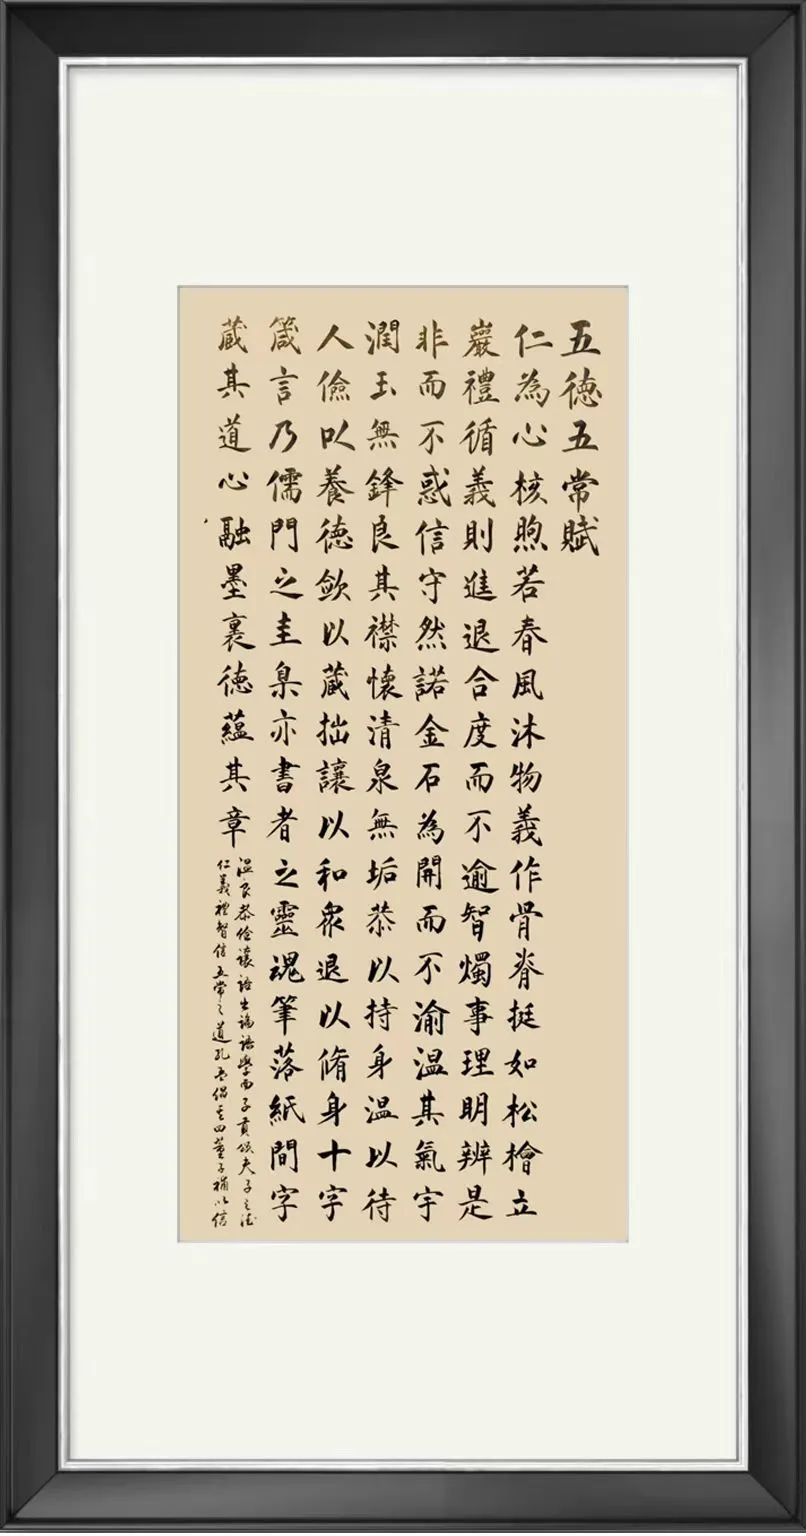 五德五常賦
仁為心核煦若春風沐物義作骨脊挺如松檜立
巖禮循義則進退合度而不逾智燭事理明辨是
非而不惑信守然諾金石為開而不渝温其氣宇
潤玉無鋒良其襟懷清泉無垢恭以持身温以待
人儉以養德斂以蔵拙讓以和衆退以脩身十字
箴言乃儒門之圭臬亦書者之靈魂筆落紙間字
蔵其道心融墨裏德蘊其章
温良恭儉讓語出論語學而子貢頌夫子之德
仁義禮智信五常之道孔孟倡其四董子補以信